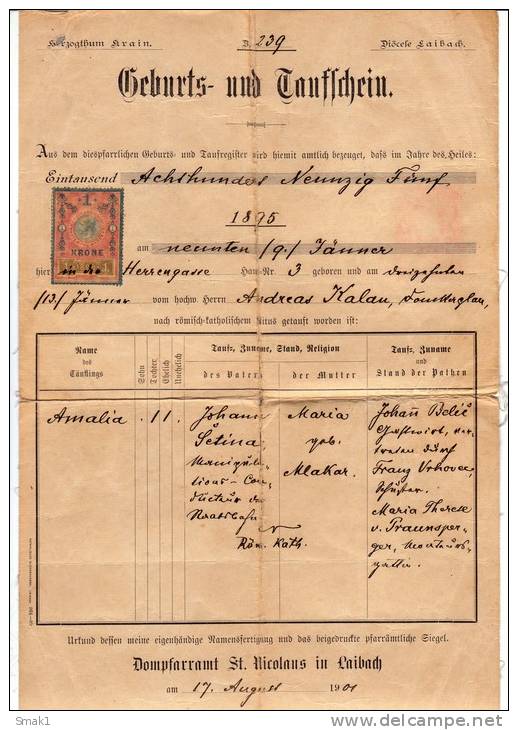 Herzogthum Krain. Z. 239 Diöcese Laibach.
Geburts- und Taufschein.
Aus dem diespfarrlichen Geburts- und Taufregister wird hiemit amtlich bezeuget, dass im Jahre des Heiles:
Eintausend Achthundert Neunzig Fünf
1895
1
KRONE
am neunten (9.) Jänner
hier in der Herrengasse Haus-Nr. 3 geboren und am dreizehnten
(13.) Jänner vom hochw. Herrn Andreas Kalan,
nach römisch-katholischem Ritus getauft worden ist:
Name des Täuflings
Sohn
Tochter
Ehelich
Unehelich
Taufz, Zuname, Stand, Religion
des Vaters
der Mutter
Taufz, Zuname
und Stand der Pathen
Amalia
. 1 1 .
Johann
Šetina
Manipula-
tions-Con-
ducteur der
Staatsbahn
Maria
geb.
Mlakar.
Röm. Kath.
Johann Belič
Gastwirt, ver-
treten durch
Franz Vrhovec,
Schuster.
Maria Therese
v. Praunsper-
ger,
gattin.
Urkund dessen meine eigenhändige Namensfertigung und das beigedruckte pfarrämtliche Siegel.
Dompfarramt St. Nicolaus in Laibach
am 17. August 1901
Smak1
delcampe.net